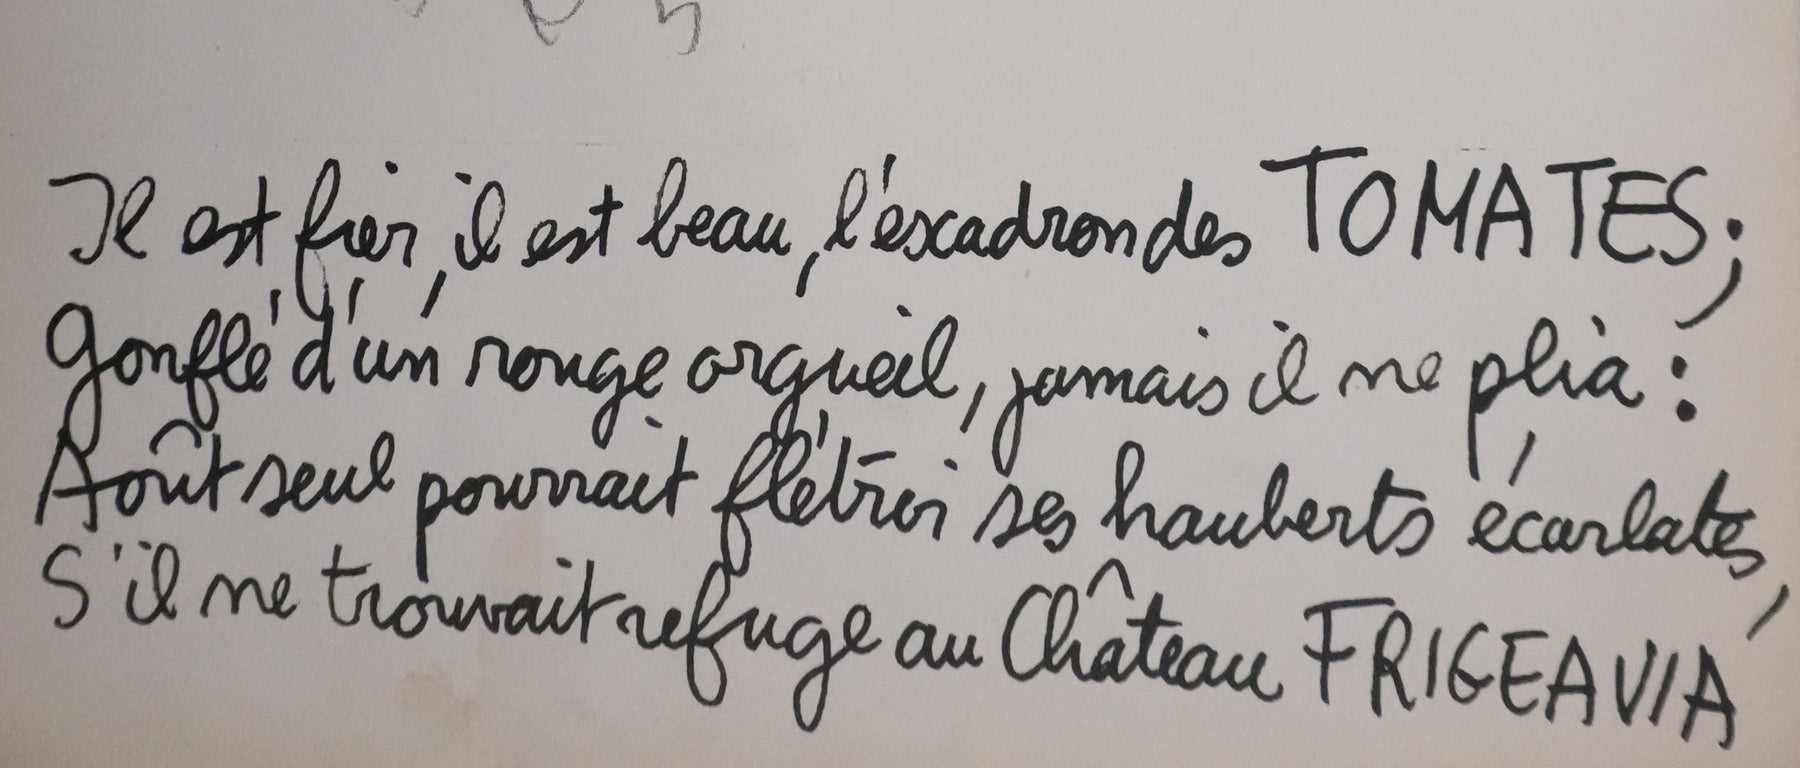 Il est fier, il est beau, l'escadron des TOMATES;
Gonflé d'un rouge orgueil, jamais il ne plia:
Août seul pourrait flétrir ses hauberts écarlates,
S'il ne trouvait refuge au Château FRIGEAVIA